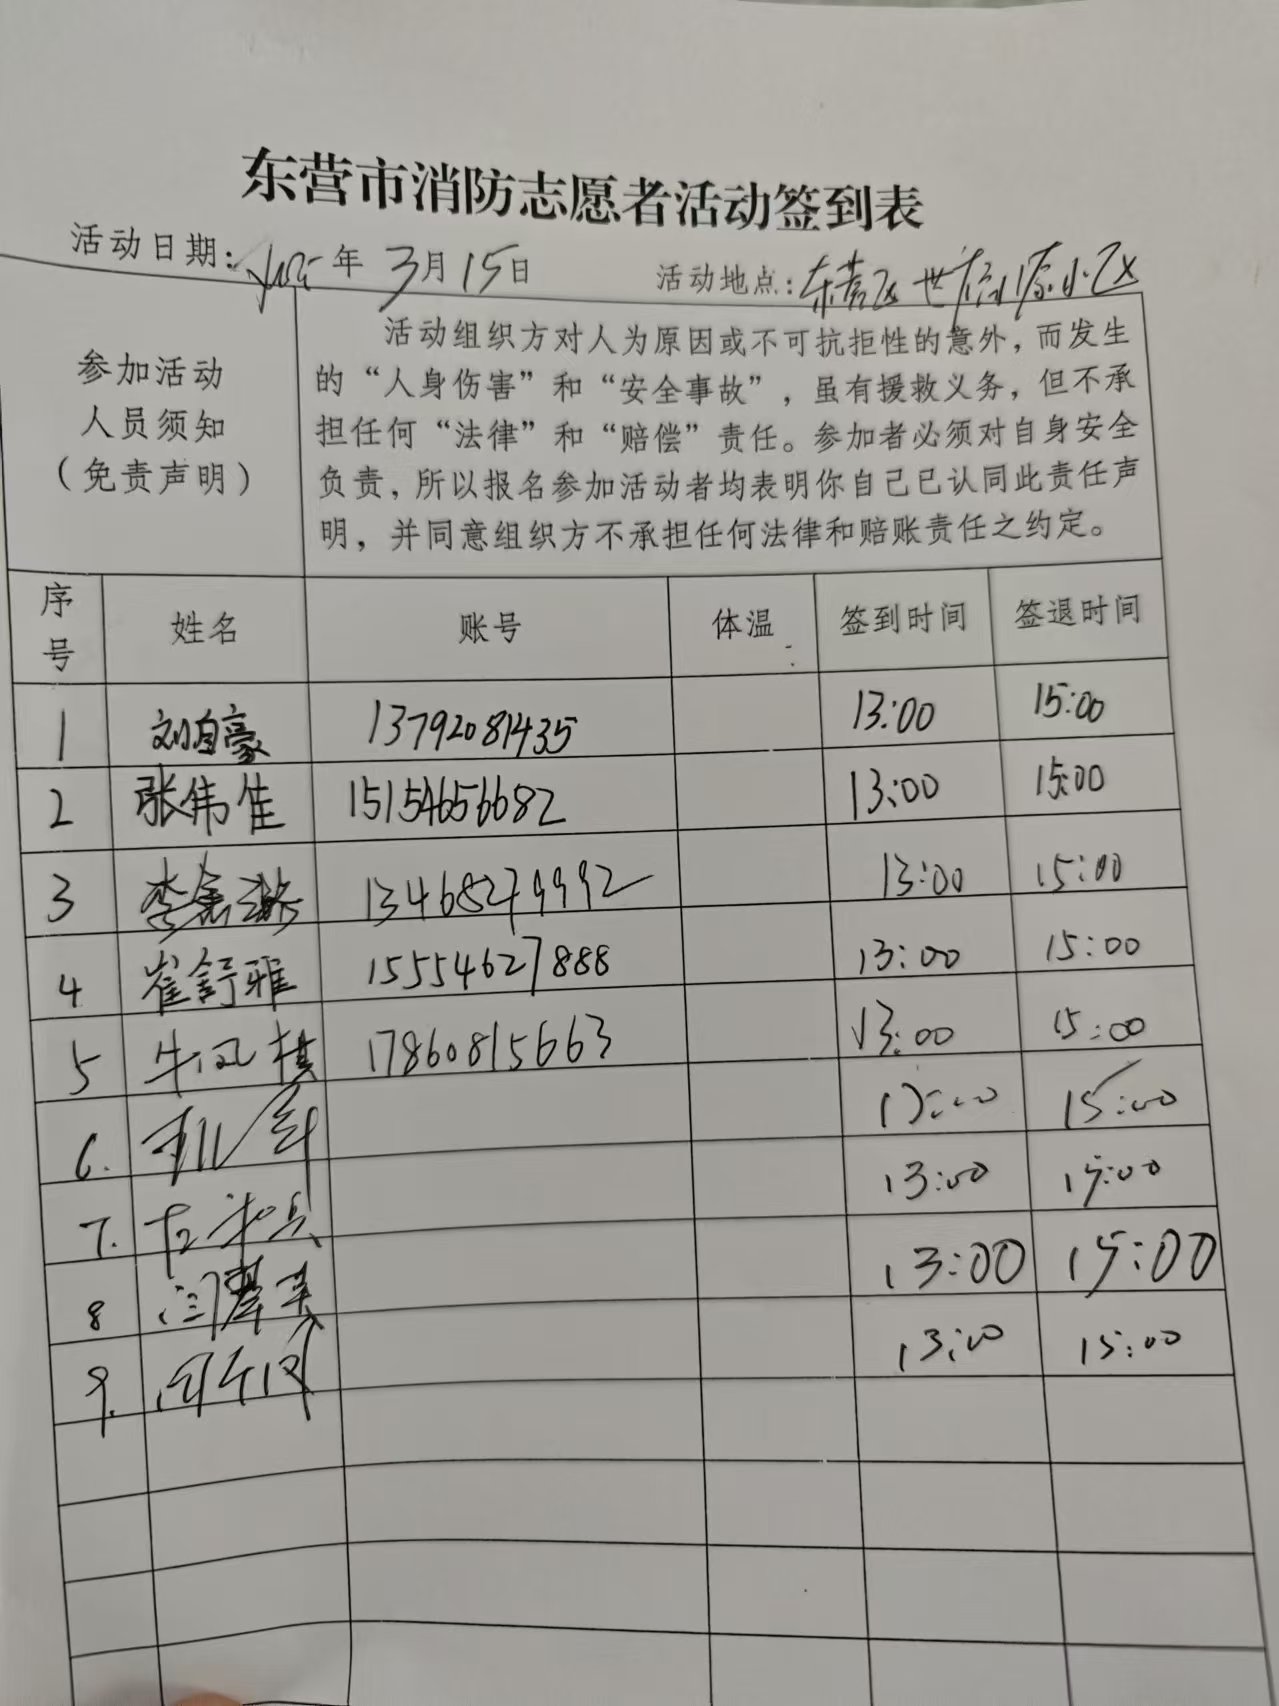 东营市消防志愿者活动签到表
活动日期: 年 3月15日 活动地点: 东营区 小区
参加活动
人员须知
（免责声明）
活动组织方对人为原因或不可抗拒性的意外，而发生
的“人身伤害”和“安全事故”，虽有援救义务，但不承
担任何“法律”和“赔偿”责任。参加者必须对自身安全
负责，所以报名参加活动者均表明你自己已认同此责任声
明，并同意组织方不承担任何法律和赔账责任之约定。
序号 姓名 账号 体温 签到时间 签退时间
1 刘自豪 13792081435 13:00 15:00
2 张伟佳 15154656682 13:00 15:00
3 李 13468279992 13:00 15:00
4 崔舒雅 15554627888 13:00 15:00
5 牛凤棋 17860815663 13:00 15:00
6. 13:00 15:00
7. 13:00 15:00
8 闫 13:00 15:00
9. 13:00 15:00